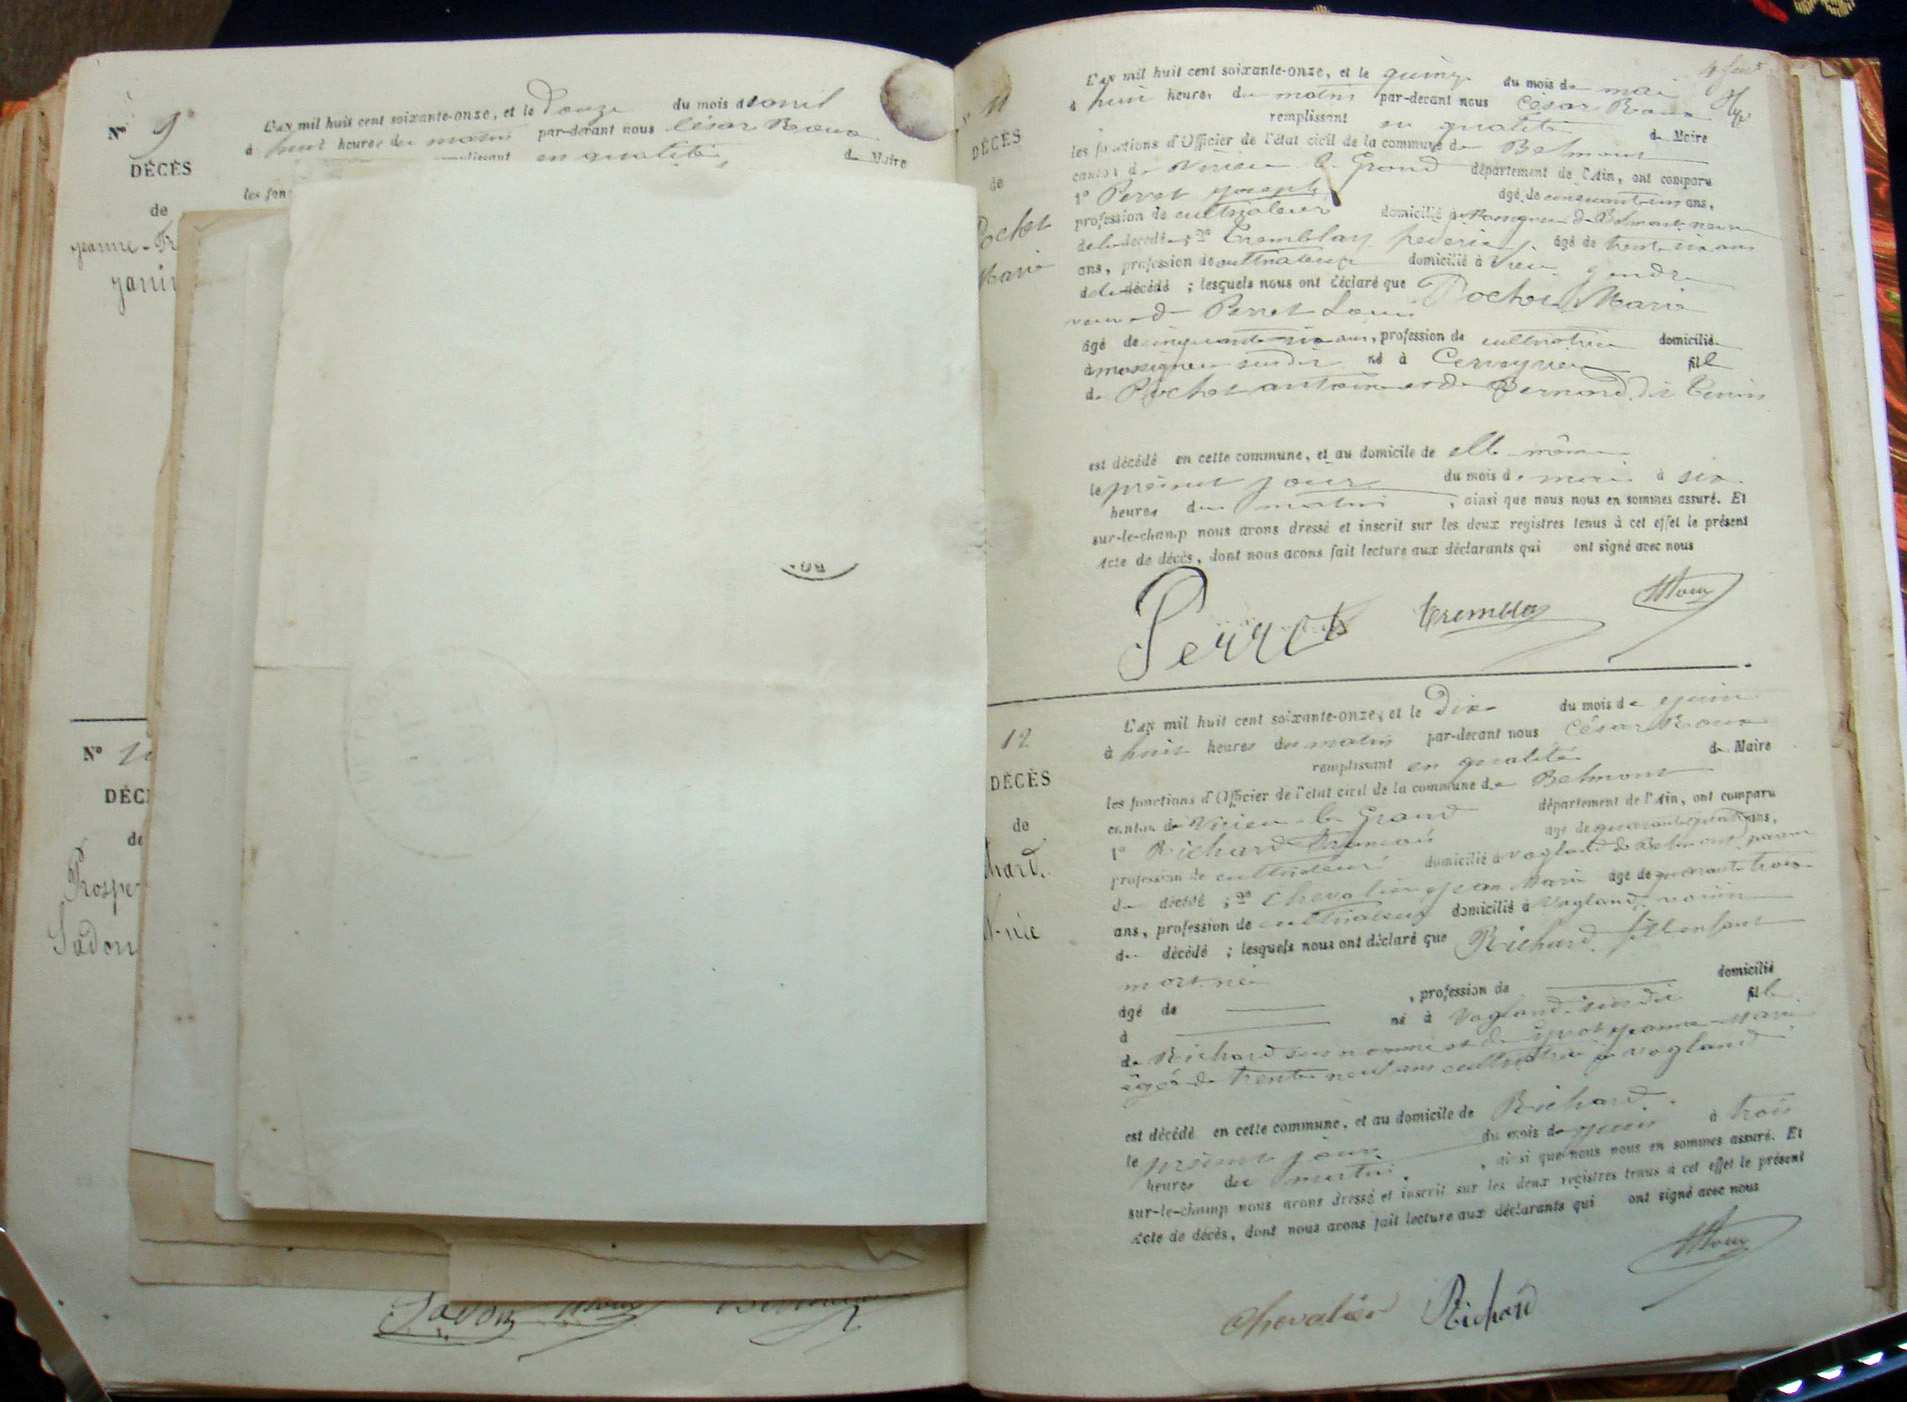 N° 9
DÉCÈS
de
Jeanne-
L'an mil huit cent soixante-onze, et le Douze du mois d'avril
à huit heures du matin par-devant nous César Roux
en qualité de Maire
les fon
N°
DÉC
de
Prosper
Sadon
Sadon
11
DÉCÈS
de
Pochet
Marie
L'an mil huit cent soixante-onze, et le quinze du mois de mai
à huit heures du matin par-devant nous César Roux
remplissant en qualité de Maire
les fonctions d'Officier de l'état civil de la commune de Belmont
canton de Virieu le Grand département de l'Ain, ont comparu
1° Perret Joseph âgé de cinquante un ans,
profession de cultivateur domicilié à de Belmont
de la décédée; 2° Tremblay âgé de trente ans
ans, profession de cultivateur domicilié à Vieu gendre
de la décédé ; lesquels nous ont déclaré que Pochet Marie
veuve de Perret Louis
âgé de cinquante six ans, profession de cultivatrice domicilié
à susdit né à Cerveyrieu fille
de Pochet antoine et de Bernard dit
est décédé en cette commune, et au domicile de elle même
le présent jour du mois de mai à six
heures du matin, ainsi que nous nous en sommes assuré. Et
sur-le-champ nous avons dressé et inscrit sur les deux registres tenus à cet effet le présent
Acte de décès, dont nous avons fait lecture aux déclarants qui ont signé avec nous
Perret Tremblay Roux
12
DÉCÈS
de
chard
t-née
L'an mil huit cent soixante-onze, et le Dix du mois de juin
à huit heures du matin par-devant nous César Roux
remplissant en qualité de Maire
les fonctions d'Officier de l'état civil de la commune de Belmont
canton de Virieu le Grand département de l'Ain, ont comparu
1° Richard François âgé de quarante quatre ans,
profession de cultivateur domicilié à Vogland de Belmont
du décédé ; 2° Chevalier Jean Marie âgé de quarante trois
ans, profession de cultivateur domicilié à Vogland voisin
du décédé ; lesquels nous ont déclaré que Richard enfant
mort né
âgé de , profession de domicilié
à né à Vogland susdit fil
de Richard susnommé et de Jeanne-Marie
âgée de trente neuf ans cultivatrice à Vogland
est décédé en cette commune, et au domicile de Richard.
le présent jour du mois de juin à trois
heures du matin, ainsi que nous nous en sommes assuré. Et
sur-le-champ nous avons dressé et inscrit sur les deux registres tenus à cet effet le présent
Acte de décès, dont nous avons fait lecture aux déclarants qui ont signé avec nous
Roux
Chevalier Richard